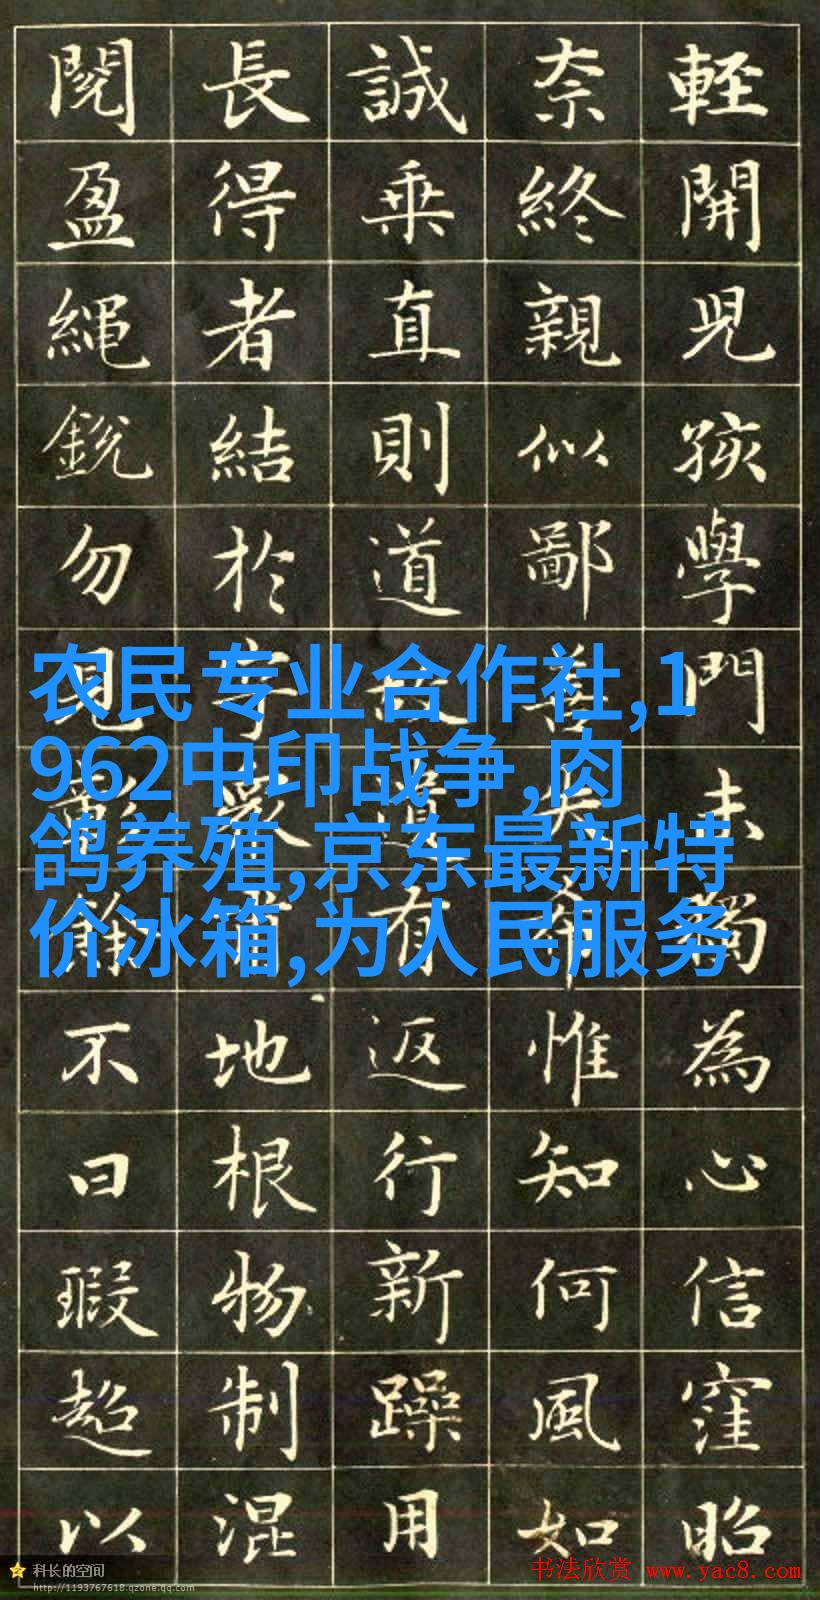 輕開兒孩學門未獨為心信窪昭
奈終親似鄙善夫希惟知何風如
誠乘直則道有返行新躁用
長得者結於地根物制混
閱盈繩銳勿見彰不曰瑕超以
农民专业合作社,1
962中印战争,肉
鸽养殖,京东最新特
价冰箱,为人民服务
科长的空间
http://1193767618.qzone.qq.com
书法欣赏 www.yac8.com